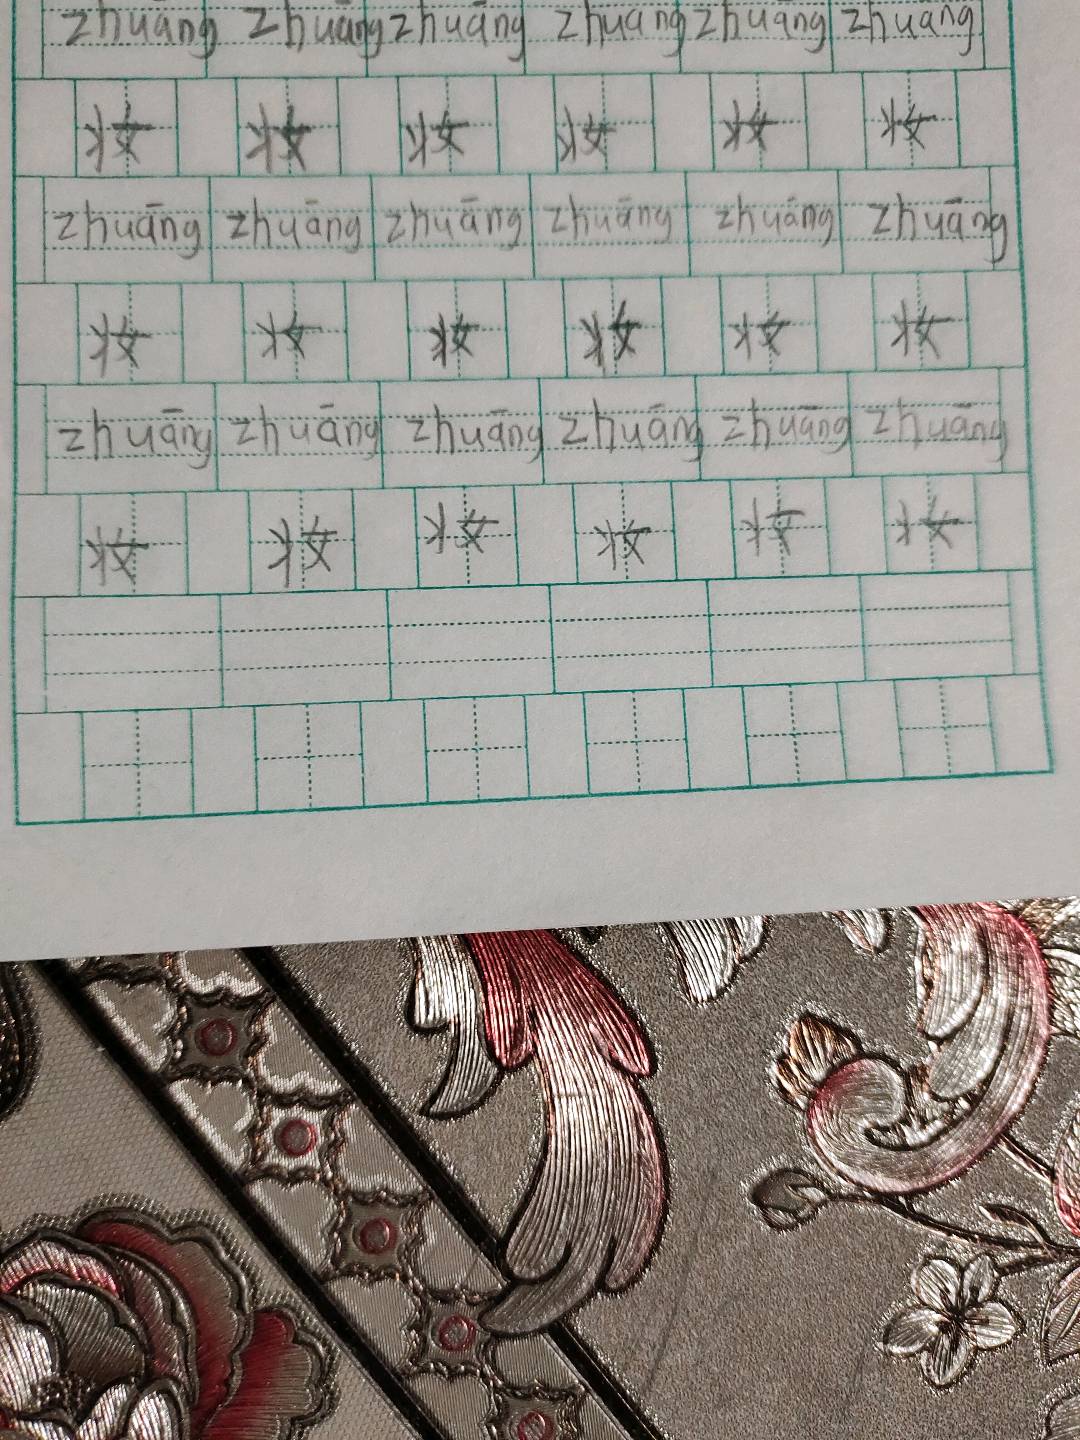 zhuāng zhuāng zhuāng zhuāng zhuāng zhuāng
妆 妆 妆 妆 妆 妆
zhuāng zhuāng zhuāng zhuāng zhuāng zhuāng
妆 妆 妆 妆 妆 妆
zhuāng zhuāng zhuāng zhuāng zhuāng zhuāng
妆 妆 妆 妆 妆 妆